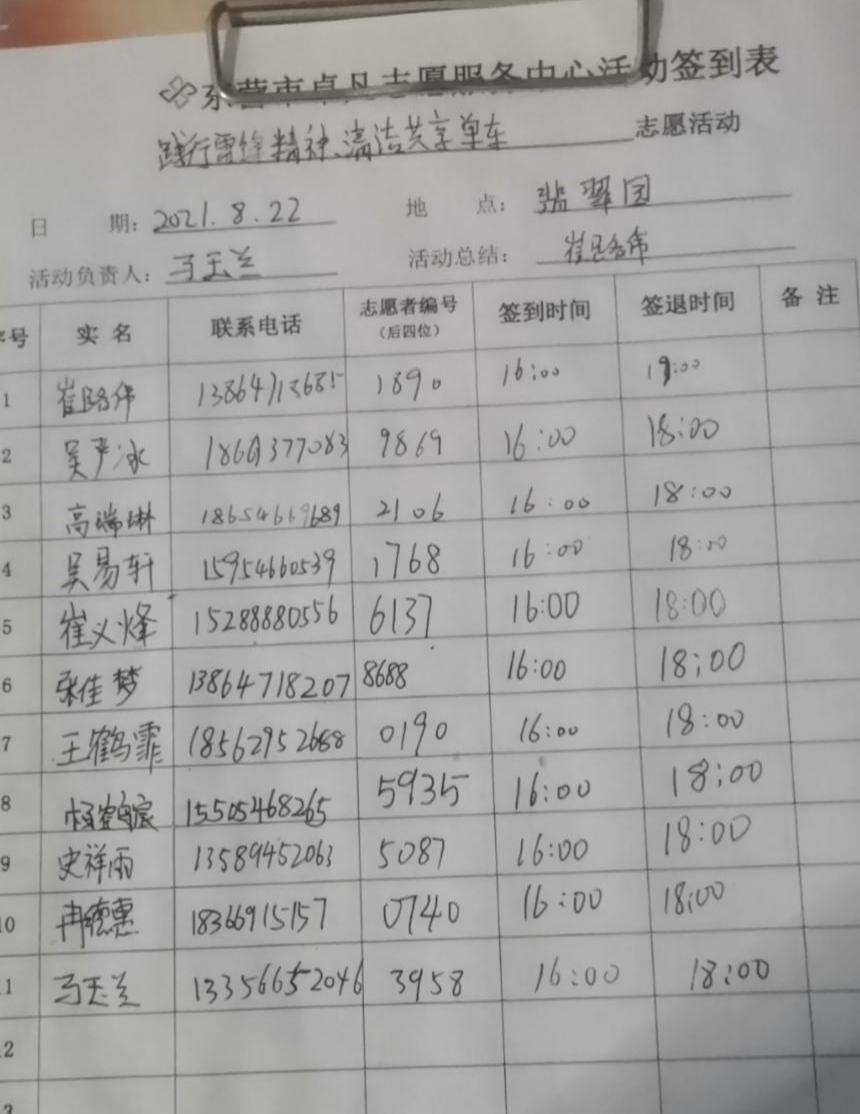 东营市卓凡志愿服务中心活动签到表
践行雷锋精神、清洁共享单车 志愿活动
日 期: 2021.8.22 地 点: 翡翠园
活动负责人: 马玉兰 活动总结:
序号 实名 联系电话 志愿者编号(后四位) 签到时间 签退时间 备注
1 1890 16:00 19:00
2 吴严冰 9869 16:00 18:00
3 高瑞琳 18654669689 2106 16:00 18:00
4 吴易轩 15954660539 1768 16:00 18:00
5 崔义烽 15288880556 6137 16:00 18:00
6 张佳梦 13864718207 8688 16:00 18:00
7 王鹤霏 0190 16:00 18:00
8 15505468265 5935 16:00 18:00
9 史祥雨 13589452063 5087 16:00 18:00
10 冉德惠 18366915157 0740 16:00 18:00
11 马玉兰 13356652046 3958 16:00 18:00
12
13